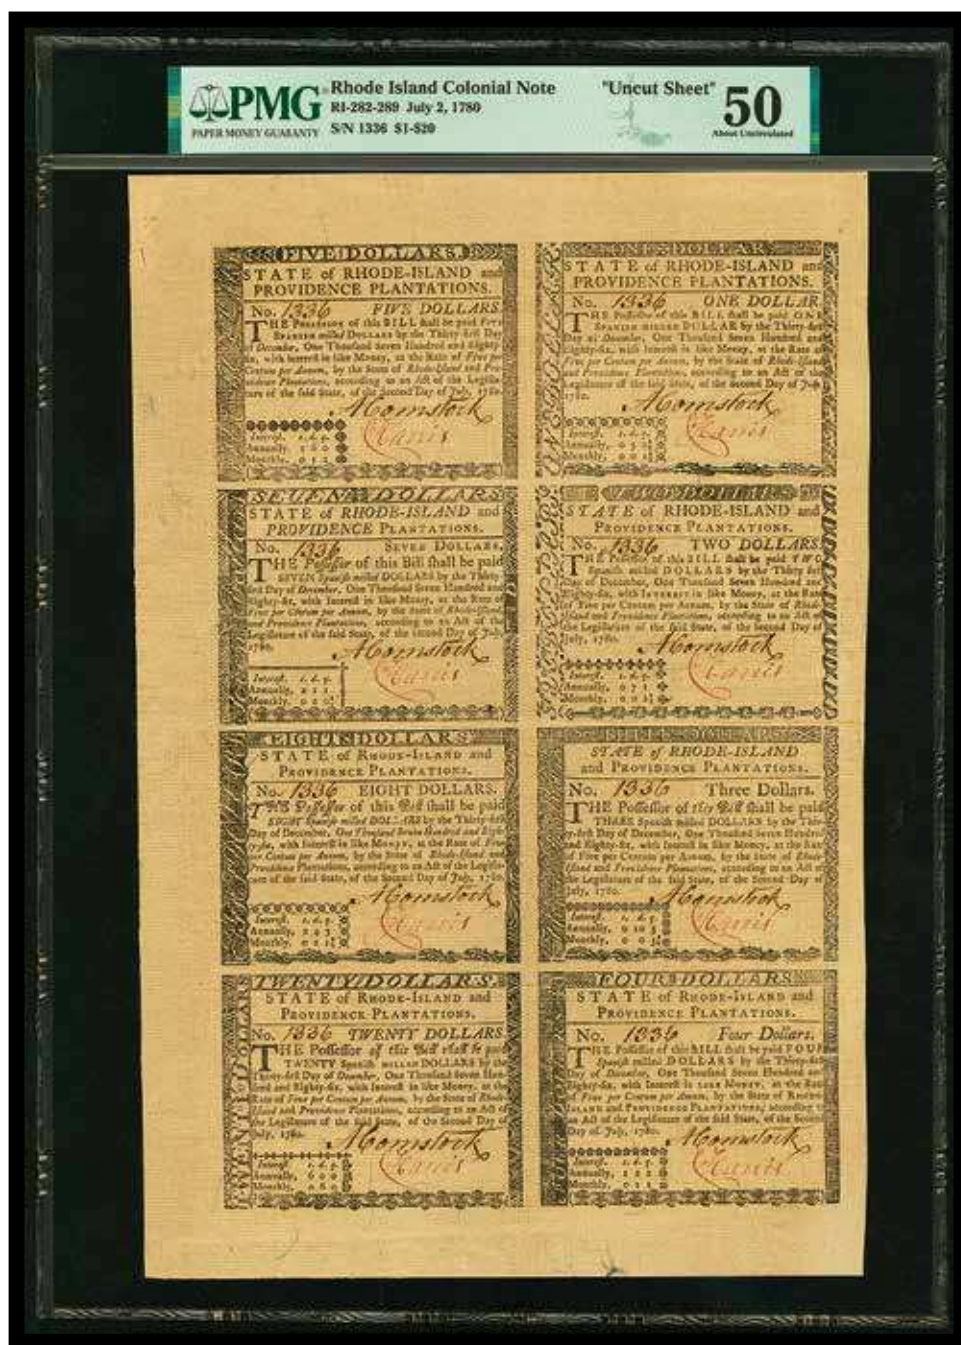 PMG
PAPER MONEY GUARANTY
Rhode Island Colonial Note
RI-282-289 July 2, 1780
S/N 1336 $1-$20
"Uncut Sheet"
50
About Uncirculated
FIVE DOLLARS.
STATE of RHODE-ISLAND and
PROVIDENCE PLANTATIONS.
No. 1336 FIVE DOLLARS.
THE Possessor of this BILL shall be paid FIVE
SPANISH milled DOLLARS by the Thirty-first Day
of December, One Thousand Seven Hundred and Eighty-
six, with Interest in like Money, at the Rate of Five per
Centum per Annum, by the State of Rhode-Island and Pro-
vidence Plantations, according to an Act of the Legisla-
ture of the said State, of the Second Day of July, 1780.
AComstock
Interest. s. d. q.
Annually,
Monthly,
ONE DOLLAR
STATE of RHODE-ISLAND and
PROVIDENCE PLANTATIONS.
No. 1336 ONE DOLLAR.
THE Possessor of this BILL shall be paid ONE
SPANISH MILLED DOLLAR by the Thirty-first
Day of December, One Thousand Seven Hundred and
Eighty-six, with Interest in like Money, at the Rate of
Five per Centum per Annum, by the State of Rhode-Island
and Providence Plantations, according to an Act of the
Legislature of the said State, of the Second Day of July,
1780.
AComstock
Interest. s. d. q.
Annually,
Monthly,
SEVEN DOLLARS
STATE of RHODE-ISLAND and
PROVIDENCE PLANTATIONS.
No. 1336 SEVEN DOLLARS.
THE Possessor of this Bill shall be paid
SEVEN Spanish milled DOLLARS by the Thirty-
first Day of December, One Thousand Seven Hundred and
Eighty-six, with Interest in like Money, at the Rate of
Five per Centum per Annum, by the State of Rhode-Island
and Providence Plantations, according to an Act of the
Legislature of the said State, of the second Day of July,
1780.
AComstock
Interest. s. d. q.
Annually,
Monthly,
TWO DOLLARS
STATE of RHODE-ISLAND and
PROVIDENCE PLANTATIONS.
No. 1336 TWO DOLLARS.
THE Possessor of this BILL shall be paid TWO
Spanish milled DOLLARS by the Thirty-first
Day of December, One Thousand Seven Hundred and
Eighty-six, with INTEREST in like Money, at the Rate
of Five per Centum per Annum, by the State of Rhode-
Island and Providence Plantations, according to an Act of
the Legislature of the said State, of the second Day of
July, 1780.
AComstock
Interest. s. d. q.
Annually,
Monthly,
EIGHT DOLLARS
STATE of RHODE-ISLAND and
PROVIDENCE PLANTATIONS.
No. 1336 EIGHT DOLLARS.
THE Possessor of this Bill shall be paid
EIGHT Spanish milled DOLLARS by the Thirty-first
Day of December, One Thousand Seven Hundred and Eigh-
ty-six, with Interest in like Money, at the Rate of Five
per Centum per Annum, by the State of Rhode-Island and
Providence Plantations, according to an Act of the Legisla-
ture of the said State, of the Second Day of July, 1780.
AComstock
Interest. s. d. q.
Annually,
Monthly,
STATE of RHODE-ISLAND
and PROVIDENCE PLANTATIONS.
No. 1336 Three Dollars.
THE Possessor of this Bill shall be paid
THREE Spanish milled DOLLARS by the Thir-
ty-first Day of December, One Thousand Seven Hundred
and Eighty-six, with Interest in like Money, at the Rate
of Five per Centum per Annum, by the State of Rhode-
Island and Providence Plantations, according to an Act of
the Legislature of the said State, of the Second Day of
July, 1780.
AComstock
Interest. s. d. q.
Annually,
Monthly,
TWENTY DOLLARS.
TWENTY DOLLARS
STATE of RHODE-ISLAND and
PROVIDENCE PLANTATIONS.
No. 1336 TWENTY DOLLARS.
THE Possessor of this Bill shall be paid
TWENTY Spanish MILLED DOLLARS by the
Thirty-first Day of December, One Thousand Seven Hun-
dred and Eighty-six, with Interest in like Money, at the
Rate of Five per Centum per Annum, by the State of Rhode-
Island and Providence Plantations, according to an Act of
the Legislature of the said State, of the Second Day of
July, 1780.
AComstock
Interest. s. d. q.
Annually,
Monthly,
FOUR DOLLARS
STATE of RHODE-ISLAND and
PROVIDENCE PLANTATIONS.
No. 1336 Four Dollars.
THE Possessor of this BILL shall be paid FOUR
Spanish milled DOLLARS by the Thirty-first
Day of December, One Thousand Seven Hundred and
Eighty-six, with Interest in LIKE MONEY, at the Rate
of Five per Centum per Annum, by the State of RHODE-
ISLAND and PROVIDENCE PLANTATIONS, according to
an Act of the Legislature of the said State, of the Second
Day of July, 1780.
AComstock
Interest. s. d. q.
Annually,
Monthly,